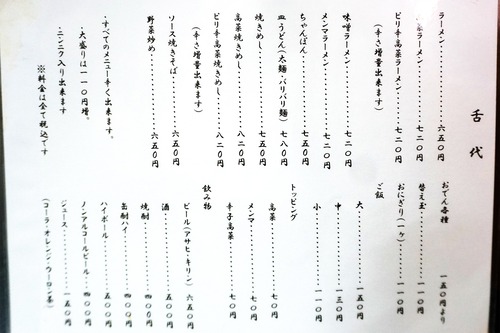 舌代
ラーメン………六五〇円
ラーメン………七二〇円
ピリ辛高菜ラーメン……七二〇円
（辛さ増量出来ます）
味噌ラーメン………七二〇円
メンマラーメン………七二〇円
ちゃんぽん………七五〇円
皿うどん（太麺・バリバリ麺）七八〇円
焼きめし………七五〇円
高菜焼きめし………八二〇円
ピリ辛高菜焼きめし……八二〇円
（辛さ増量出来ます）
ソース焼きそば………六五〇円
野菜炒め………六五〇円
・すべてのメニュー辛く出来ます。
・大盛りは一一〇円増。
・ニンニク入り出来ます
※料金は全て税込です
おでん各種　一五〇円より
替え玉………一一〇円
おにぎり（一ヶ）……一一〇円
ご飯
大………一五〇円
中………一三〇円
小………一一〇円
トッピング
高菜………七〇円
メンマ………七〇円
辛子高菜………七〇円
飲み物
ビール（アサヒ・キリン）六五〇円
酒………五〇〇円
焼酎………四〇〇円
缶酎ハイ………四〇〇円
ハイボール………五〇〇円
ノンアルコールビール……四〇〇円
ジュース………一五〇円
（コーラ・オレンジ・ウーロン茶）